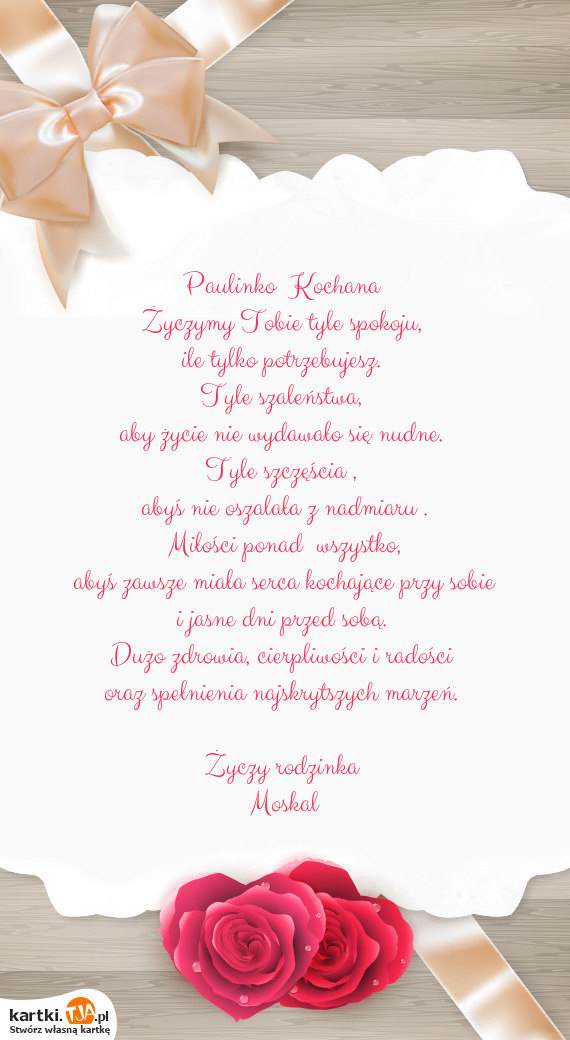 Paulinko Kochana
Życzymy Tobie tyle spokoju,
ile tylko potrzebujesz.
Tyle szaleństwa,
aby życie nie wydawało się nudne.
Tyle szczęścia ,
abyś nie oszalała z nadmiaru .
Miłości ponad wszystko,
abyś zawsze miała serca kochające przy sobie
i jasne dni przed sobą.
Dużo zdrowia, cierpliwości i radości
oraz spełnienia najskrytszych marzeń.
Życzy rodzinka
Moskal
kartki.TJA.pl
Stwórz własną kartkę